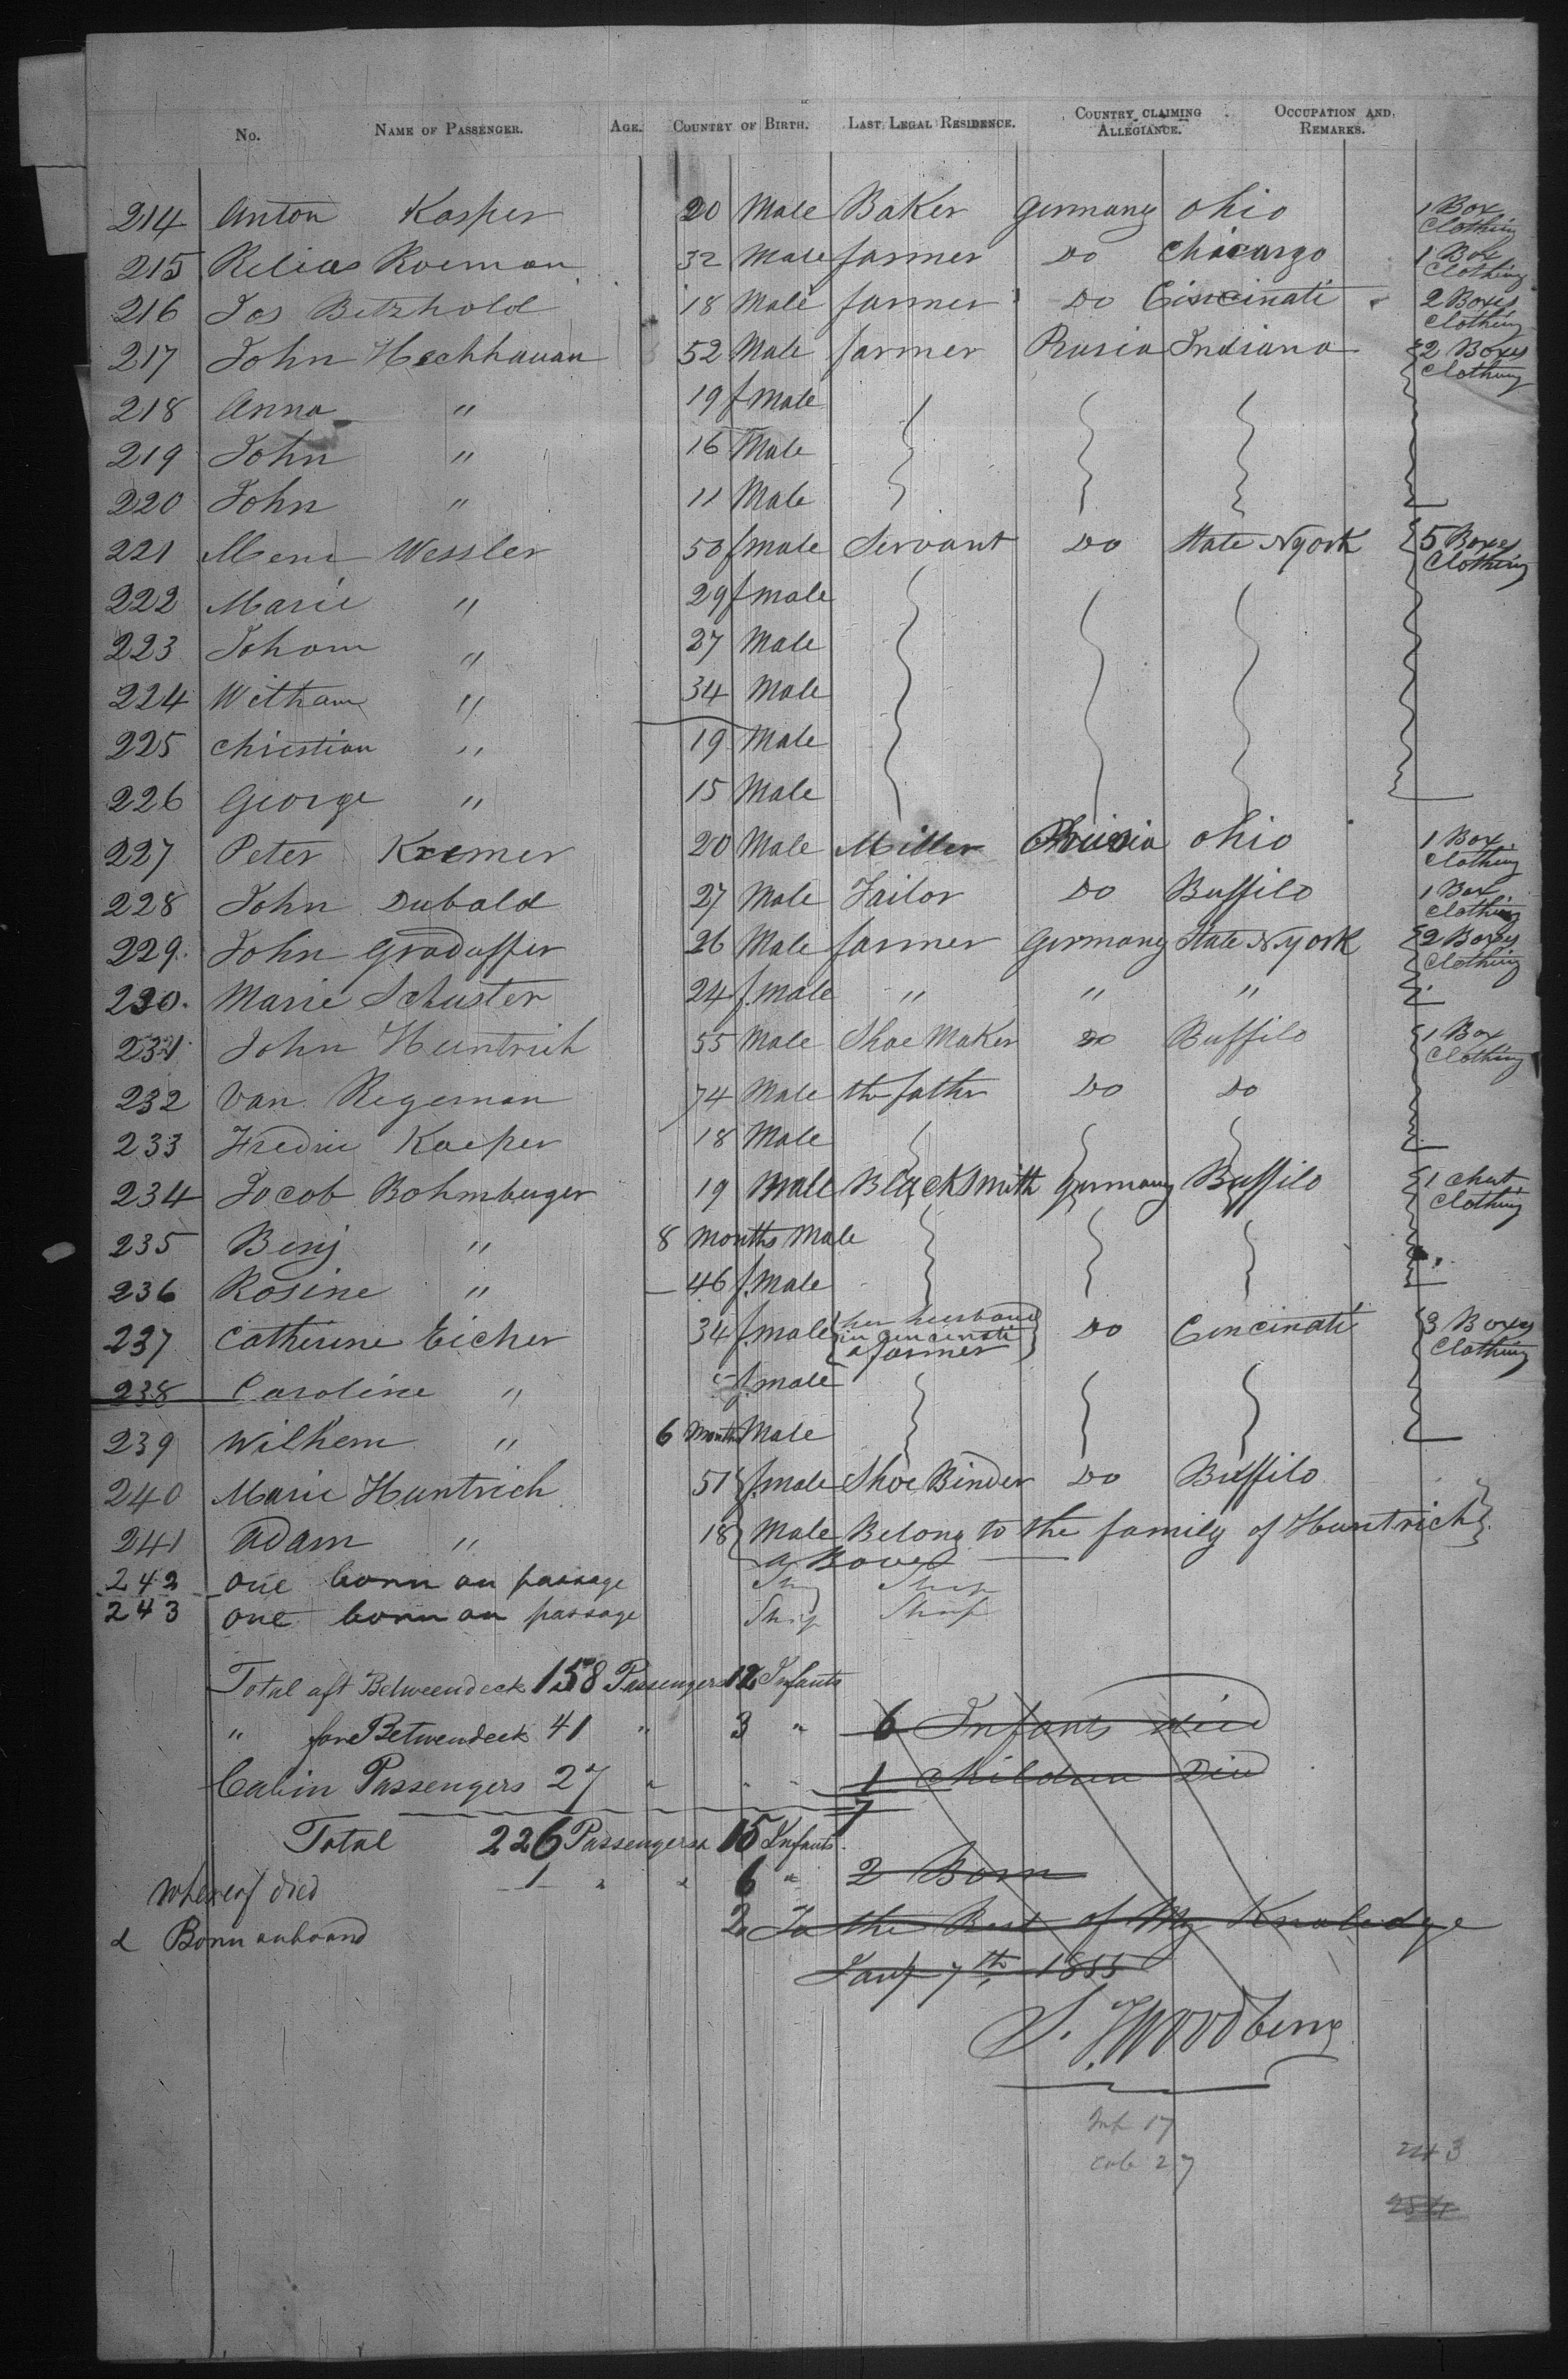 No. NAME OF PASSENGER. AGE. COUNTRY OF BIRTH. LAST LEGAL RESIDENCE. COUNTRY CLAIMING ALLEGIANCE. OCCUPATION AND REMARKS.
214 Anton Kasper 20 Male Baker Germany Ohio 1 Box Clothing
215 Relias Roeman 32 Male farmer Do Chicargo 1 Box Clothing
216 Jos Betzhold 18 Male farmer Do Cincinati 2 Boxes Clothing
217 John Hechhauan 52 Male farmer Rusia Indiana 2 Boxes Clothing
218 Anna " 19 fmale
219 John " 16 Male
220 John " 11 Male
221 Mem Wessler 50 fmale Servant Do State Nyork 5 Boxes Clothing
222 Marie " 29 fmale
223 Johom " 27 Male
224 Witham " 34 Male
225 Christian " 19 Male
226 George " 15 Male
227 Peter Kremer 20 Male Miller Ohio 1 Box Clothing
228 John Dubald 27 Male Tailor Do Buffilo 1 Box Clothing
229. John Gradaffer 26 Male farmer Germany State N.york 2 Boxes Clothing
230. Marie Schuster 24 f.male " " "
231 John Huntrich 55 Male Shoe Maker Do Buffilo 1 Box Clothing
232 Van Regeman 74 Male the father Do Do
233 Fredric Kaeper 18 Male
234 Jocob Bohmberger 19 Male Blacksmith Germany Buffilo 1 Chest Clothing
235 Benj " 8 Months Male
236 Rosine " 46 f.male
237 Catherine Eicher 34 f.male her husband in Cincinati a farmer Do Cincinati 3 Boxes Clothing
238 Caroline " f.male
239 Wilhem " 6 Months Male
240 Marie Huntrich 51 f.male Shoe Binder Do Buffilo
241 Adam " 18 Male Belong to the family of Huntrich
a Boved
242 one born on passage Ship Ship
243 one born on passage Ship Ship
Total aft Betweendeck 158 Passengers 12 Infants
" fore Betweendeck 41 " 3 " 6 Infants died
Cabin Passengers 27 " " " 1 Children Died
7
Total 226 Passengers & 15 Infants
whereof died 1 " & 6 " 2 Born
& Born on board 2 To the Best of My Knoledge
Jany 7th 1855
S. Woodberry
Inf 17
Cab 27 243